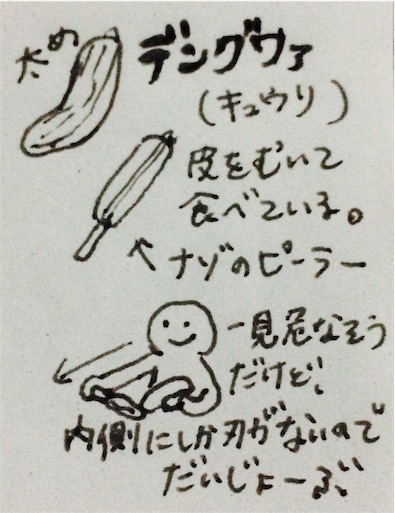 太め
デングヮァ
(キュウリ)
皮をむいて
食べている。
ナゾのピーラー
一見危なそう
だけど、
内側にしか刃がないので
だいじょーぶ